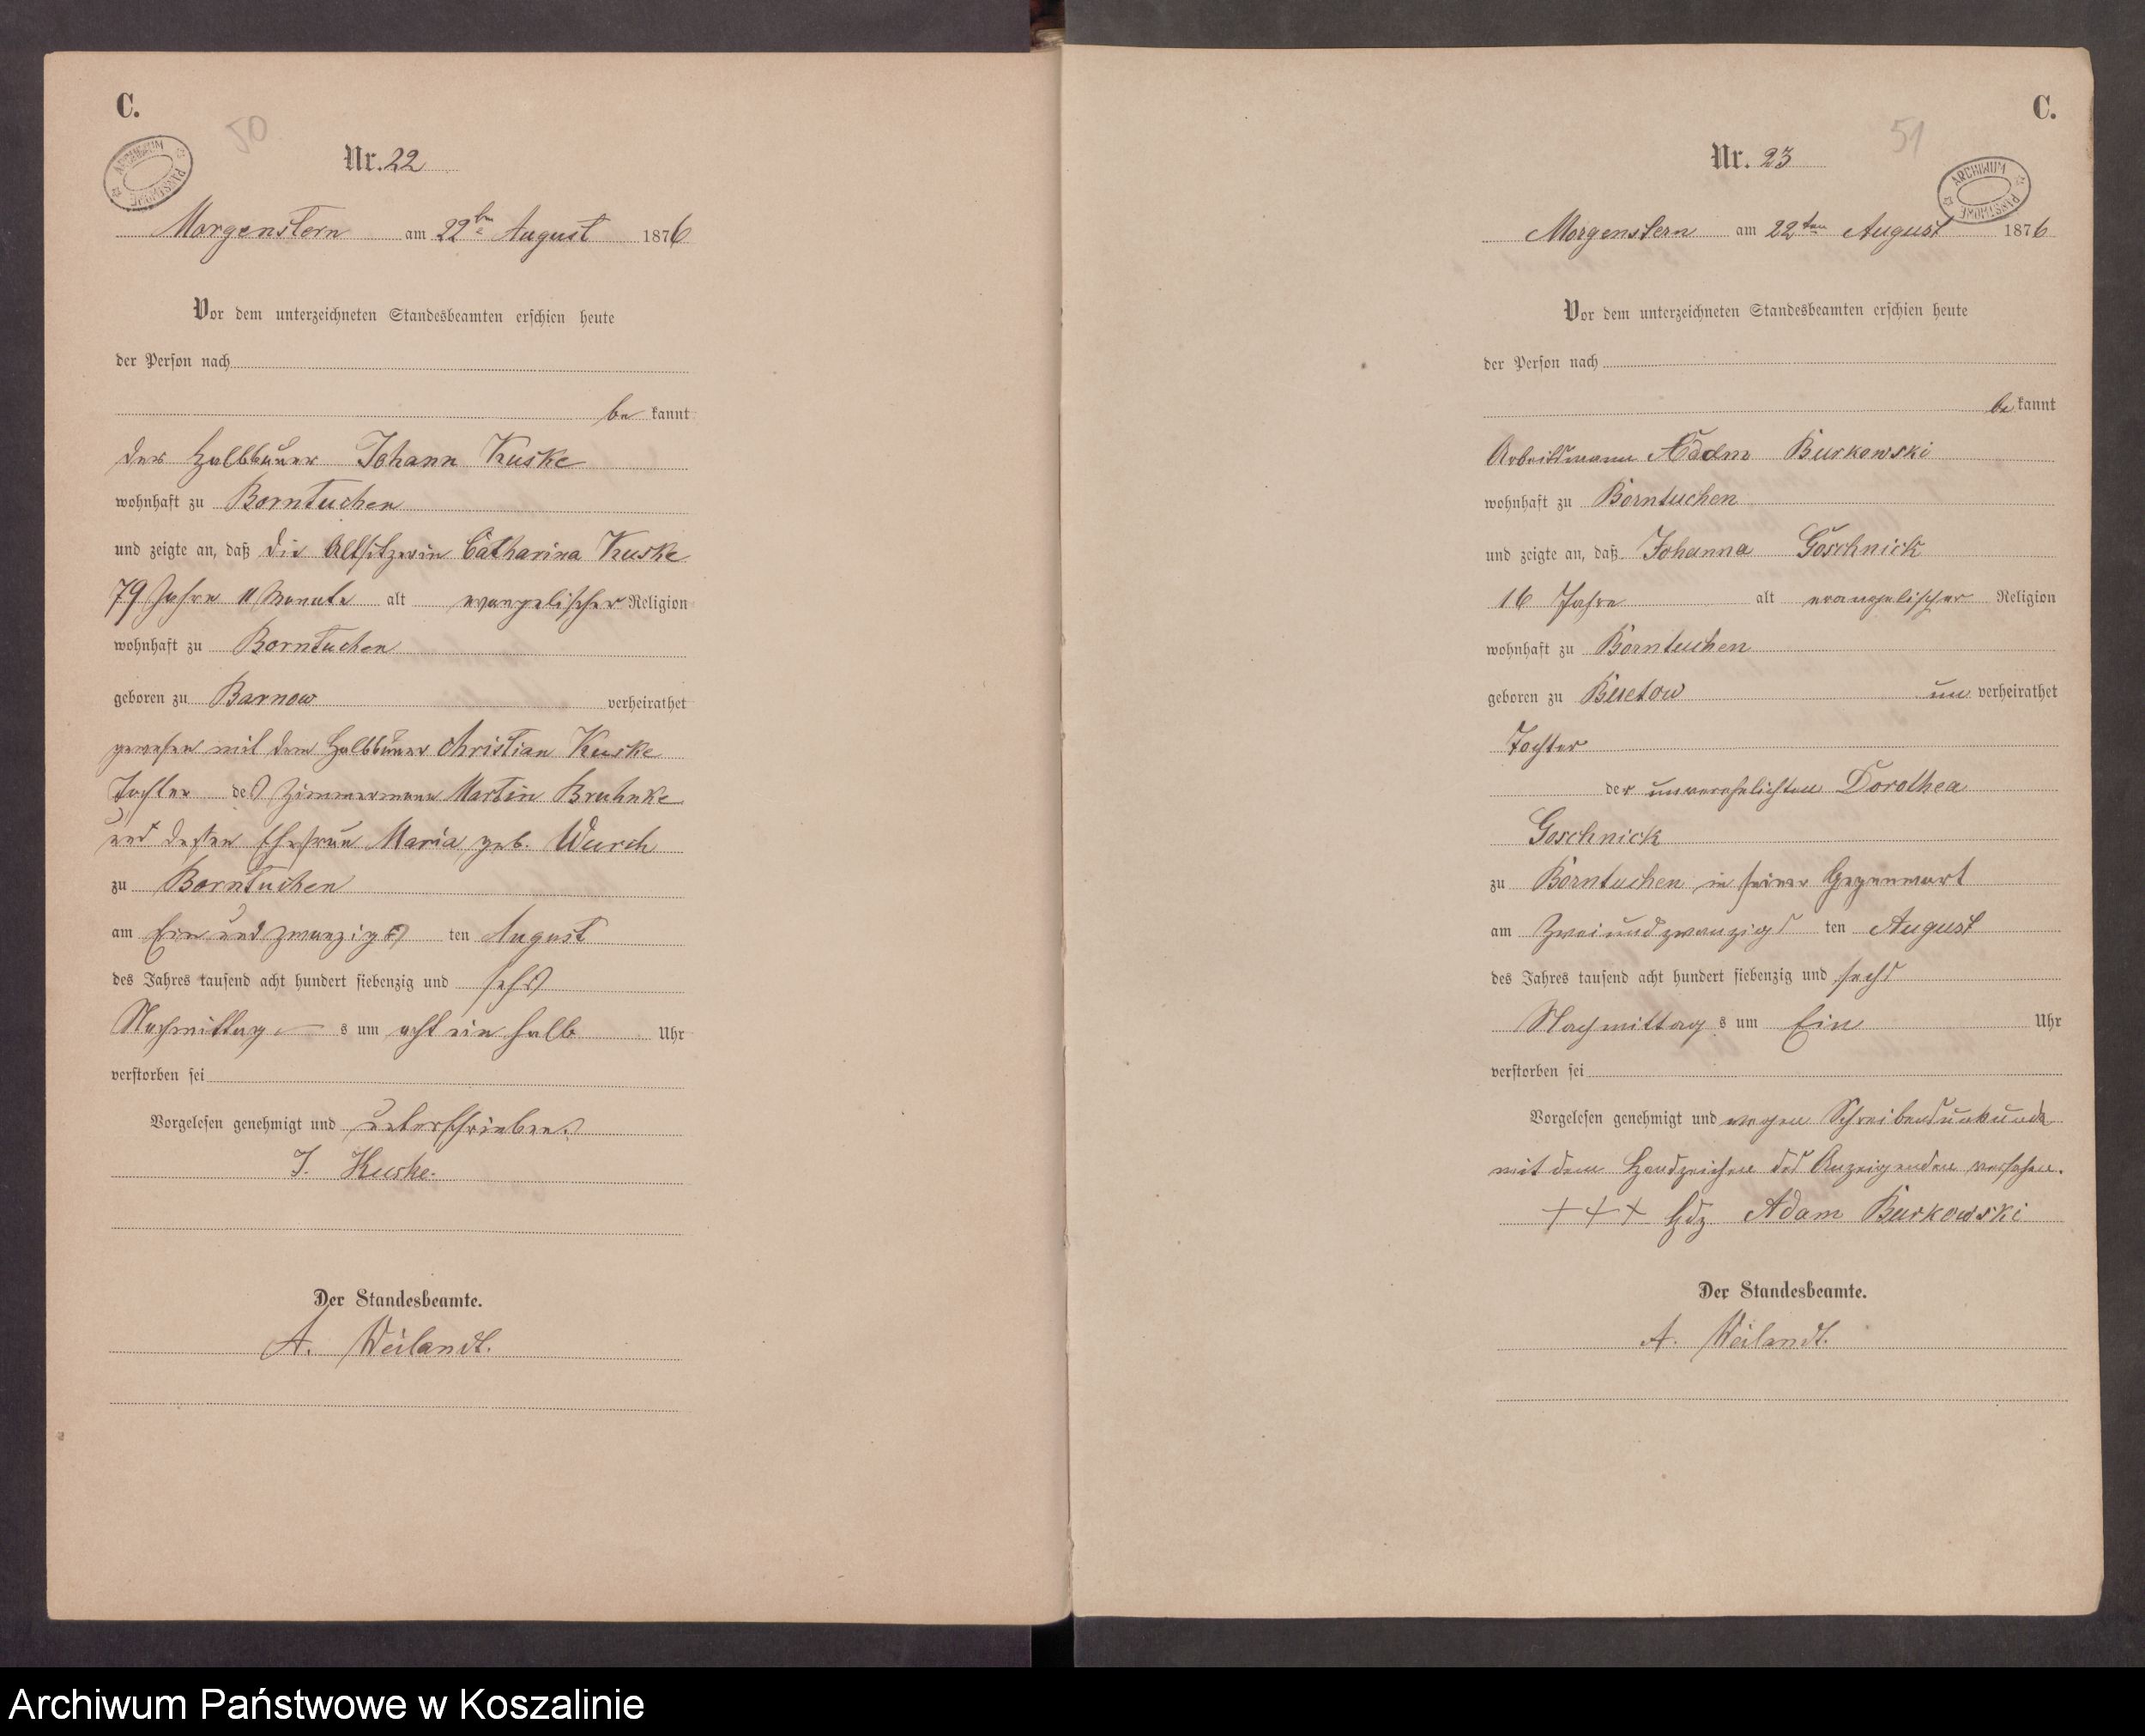 C.
50
ARCHIWUM PAŃSTWOWE
Nr. 22
Morgenstern am 22ten August 1876
Vor dem unterzeichneten Standesbeamten erschien heute
der Person nach
be kannt
der Halbbauer Johann Kuske
wohnhaft zu Borntuchen
und zeigte an, daß die Altsitzerin Catharina Kuske
79 Jahre 11 Monate alt evangelischer Religion
wohnhaft zu Borntuchen
geboren zu Barnow verheirathet
gewesen mit dem Halbbauer Christian Kuske
Tochter des Zimmermann Martin Bruhnke
und dessen Ehefrau Maria geb. Wurch
zu Borntuchen
am Ein und zwanzigs ten August
des Jahres tausend acht hundert siebenzig und sechs
Nachmittag s um acht ein halb Uhr
verstorben sei
Vorgelesen genehmigt und unterschrieben
J. Kuske.
Der Standesbeamte.
A. Weilandt.
C.
51
ARCHIWUM PAŃSTWOWE
Nr. 23
Morgenstern am 22ten August 1876
Vor dem unterzeichneten Standesbeamten erschien heute
der Person nach
be kannt
Arbeitsmann Adam Burkowski
wohnhaft zu Borntuchen
und zeigte an, daß Johanna Goschnick
16 Jahre alt evangelischer Religion
wohnhaft zu Borntuchen
geboren zu Buetow un verheirathet
Tochter
der unverehelichten Dorothea
Goschnick
zu Borntuchen in seiner Gegenwart
am Zwei und zwanzigs ten August
des Jahres tausend acht hundert siebenzig und sechs
Nachmittag s um Ein Uhr
verstorben sei
Vorgelesen genehmigt und wegen Schreibensunkunde
mit dem Handzeichen des Anzeigenden versehen.
+++ Hdz Adam Burkowski
Der Standesbeamte.
A. Weilandt.
Archiwum Państwowe w Koszalinie